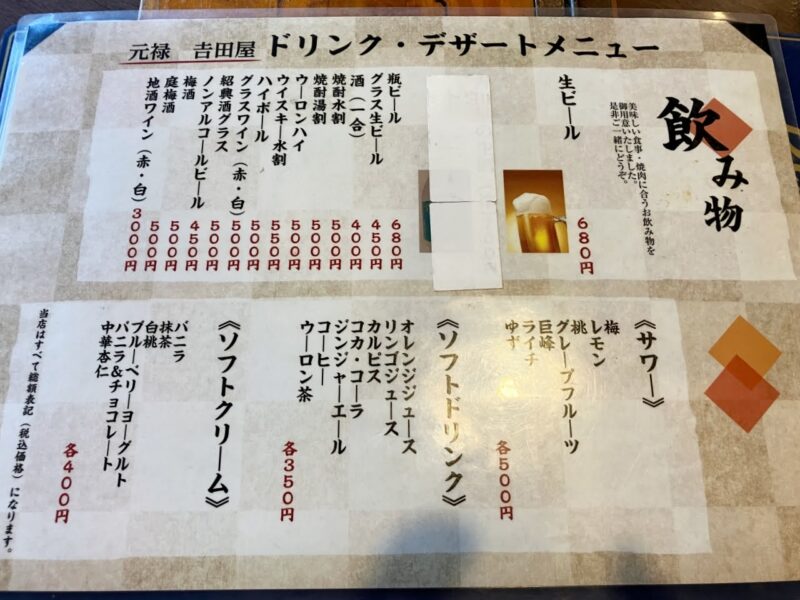 元禄 𠮷田屋 ドリンク・デザートメニュー
飲み物
美味しい食事・焼肉に合うお飲み物を
御用意いたしました。
是非ご一緒にどうぞ。
生ビール 680円
瓶ビール 680円
グラス生ビール 450円
酒(一合) 400円
焼酎水割 500円
焼酎湯割 500円
ウーロンハイ 500円
ウイスキー水割 500円
ハイボール 500円
グラスワイン(赤・白) 500円
紹興酒グラス 500円
ノンアルコールビール 450円
梅酒 500円
庭梅酒 500円
地酒ワイン(赤・白) 3000円
《サワー》
梅
レモン
桃
グレープフルーツ
巨峰
ライチ
ゆず
各500円
《ソフトドリンク》
オレンジジュース
リンゴジュース
カルピス
コカ・コーラ
ジンジャーエール
コーヒー
ウーロン茶
各350円
《ソフトクリーム》
バニラ
抹茶
白桃
ブルーベリーヨーグルト
バニラ&チョコレート
中華杏仁
各400円
当店はすべて総額表記(税込価格)になります。